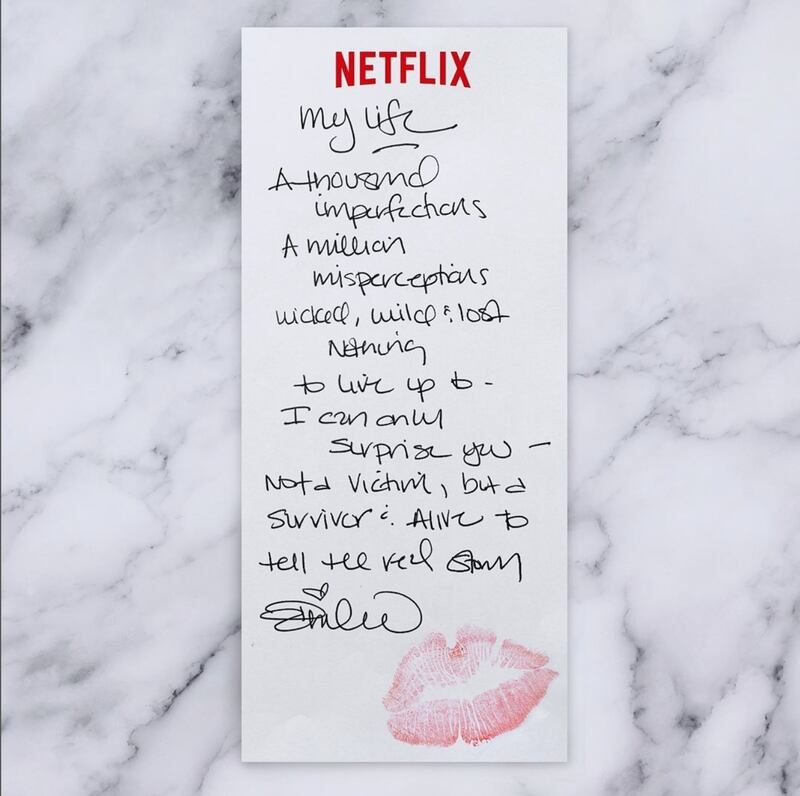 NETFLIX
My life
A thousand
imperfections
A million
misperceptions
wicked, wild & lost
Nothing
to live up to -
I can only
surprise you -
Not a victim, but a
survivor & Alive to
tell the real story